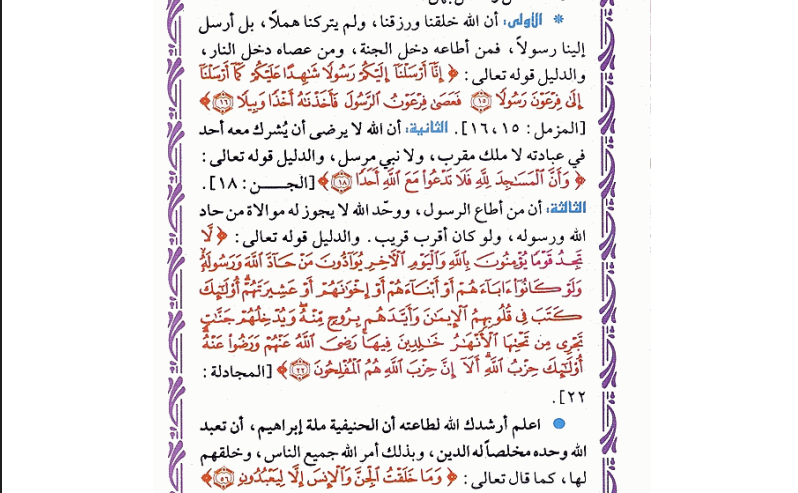 * الأولى: أن الله خلقنا ورزقنا، ولم يتركنا هملاً، بل أرسل
إلينا رسولاً، فمن أطاعه دخل الجنة، ومن عصاه دخل النار،
والدليل قوله تعالى: ﴿ إِنَّآ أَرْسَلْنَآ إِلَيْكُمْ رَسُولًا شَٰهِدًا عَلَيْكُمْ كَمَآ أَرْسَلْنَآ
إِلَىٰ فِرْعَوْنَ رَسُولًا ١٥ فَعَصَىٰ فِرْعَوْنُ ٱلرَّسُولَ فَأَخَذْنَٰهُ أَخْذًا وَبِيلًا ١٦ ﴾
[المزمل: ١٥، ١٦]. الثانية: أن الله لا يرضى أن يُشرك معه أحد
في عبادته لا ملك مقرب، ولا نبي مرسل، والدليل قوله تعالى:
﴿ وَأَنَّ ٱلْمَسَٰجِدَ لِلَّهِ فَلَا تَدْعُوا۟ مَعَ ٱللَّهِ أَحَدًا ١٨ ﴾ [الجـــن: ١٨].
الثالثة: أن من أطاع الرسول، ووحّد الله لا يجوز له موالاة من حاد
الله ورسوله، ولو كان أقرب قريب. والدليل قوله تعالى: ﴿ لَّا
تَجِدُ قَوْمًا يُؤْمِنُونَ بِٱللَّهِ وَٱلْيَوْمِ ٱلْءَاخِرِ يُوَآدُّونَ مَنْ حَآدَّ ٱللَّهَ وَرَسُولَهُۥ
وَلَوْ كَانُوٓا۟ ءَابَآءَهُمْ أَوْ أَبْنَآءَهُمْ أَوْ إِخْوَٰنَهُمْ أَوْ عَشِيرَتَهُمْ ۚ أُو۟لَٰٓئِكَ
كَتَبَ فِى قُلُوبِهِمُ ٱلْإِيمَٰنَ وَأَيَّدَهُم بِرُوحٍ مِّنْهُ ۖ وَيُدْخِلُهُمْ جَنَّٰتٍ
تَجْرِى مِن تَحْتِهَا ٱلْأَنْهَٰرُ خَٰلِدِينَ فِيهَا ۚ رَضِىَ ٱللَّهُ عَنْهُمْ وَرَضُوا۟ عَنْهُ ۚ
أُو۟لَٰٓئِكَ حِزْبُ ٱللَّهِ ۚ أَلَآ إِنَّ حِزْبَ ٱللَّهِ هُمُ ٱلْمُفْلِحُونَ ٢٢ ﴾ [المجادلة:
٢٢].
● اعلم أرشدك الله لطاعته أن الحنيفية ملة إبراهيم، أن تعبد
الله وحده مخلصاً له الدين، وبذلك أمر الله جميع الناس، وخلقهم
لها، كما قال تعالى: ﴿ وَمَا خَلَقْتُ ٱلْجِنَّ وَٱلْإِنسَ إِلَّا لِيَعْبُدُونِ ٥٦ ﴾